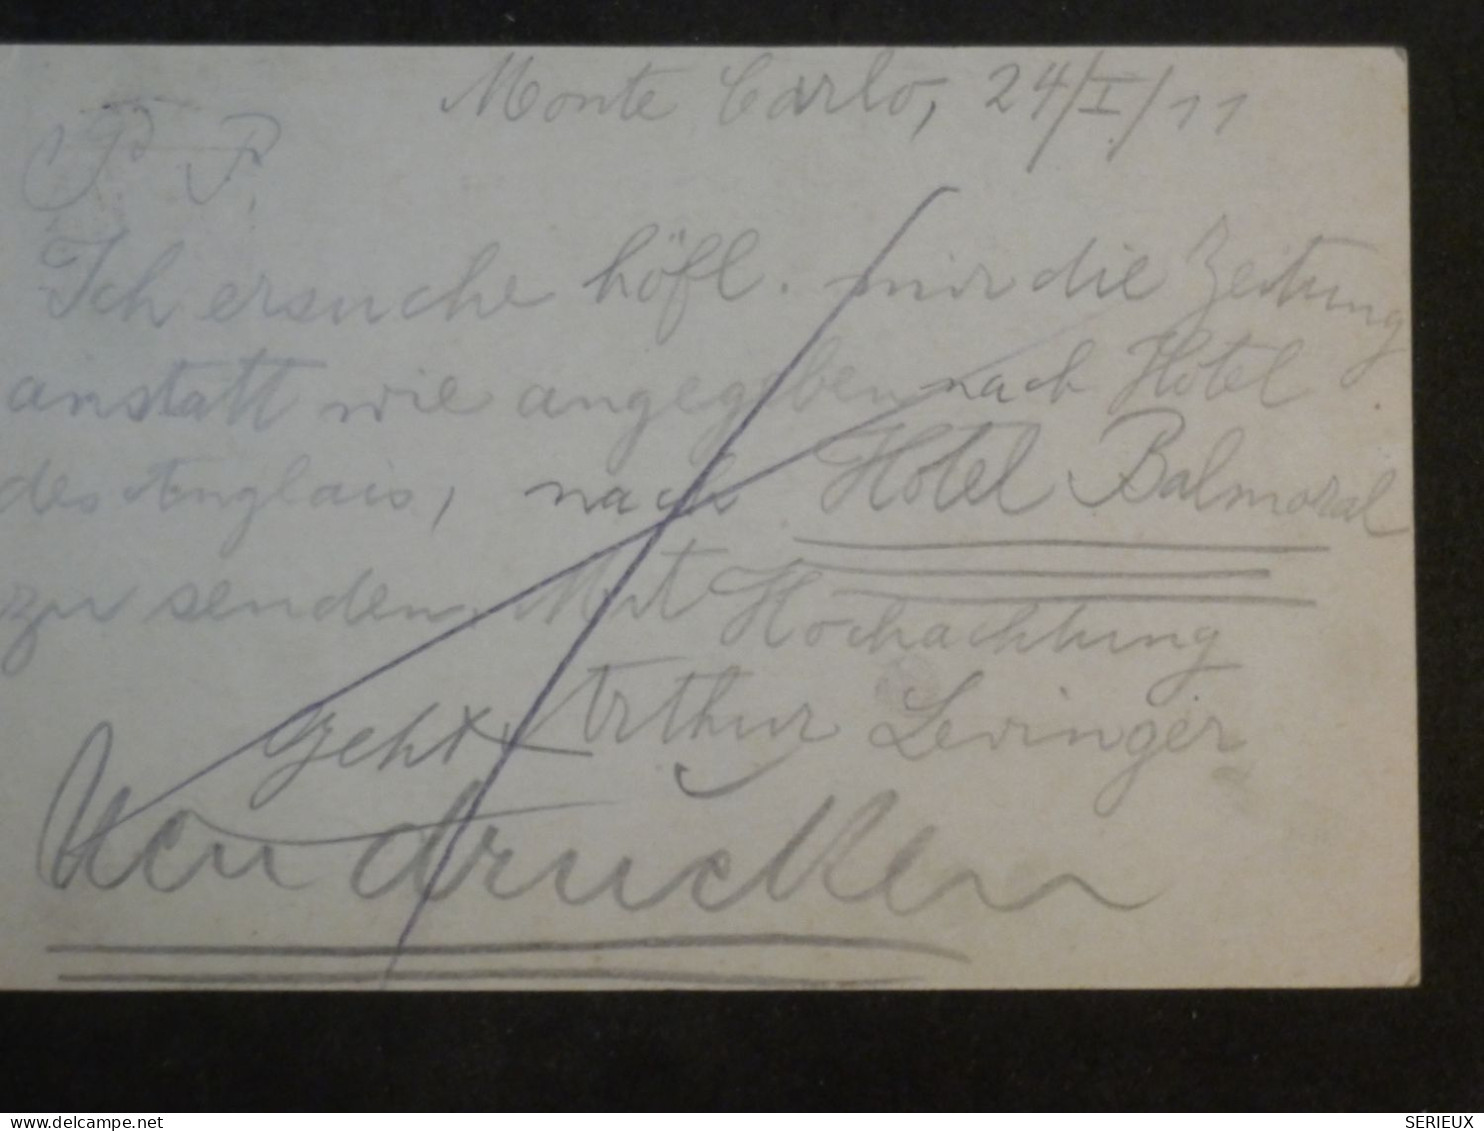 Monte Carlo, 24/I/11
P. P.
Ich ersuche höfl. mir die Zeitung
anstatt wie angegeben nach Hotel
des Anglais, nach Hotel Balmoral
zu senden. Mit Hochachtung
Arthur Levinger
geht
Neu drucken
delcampe.net
SERIEUX